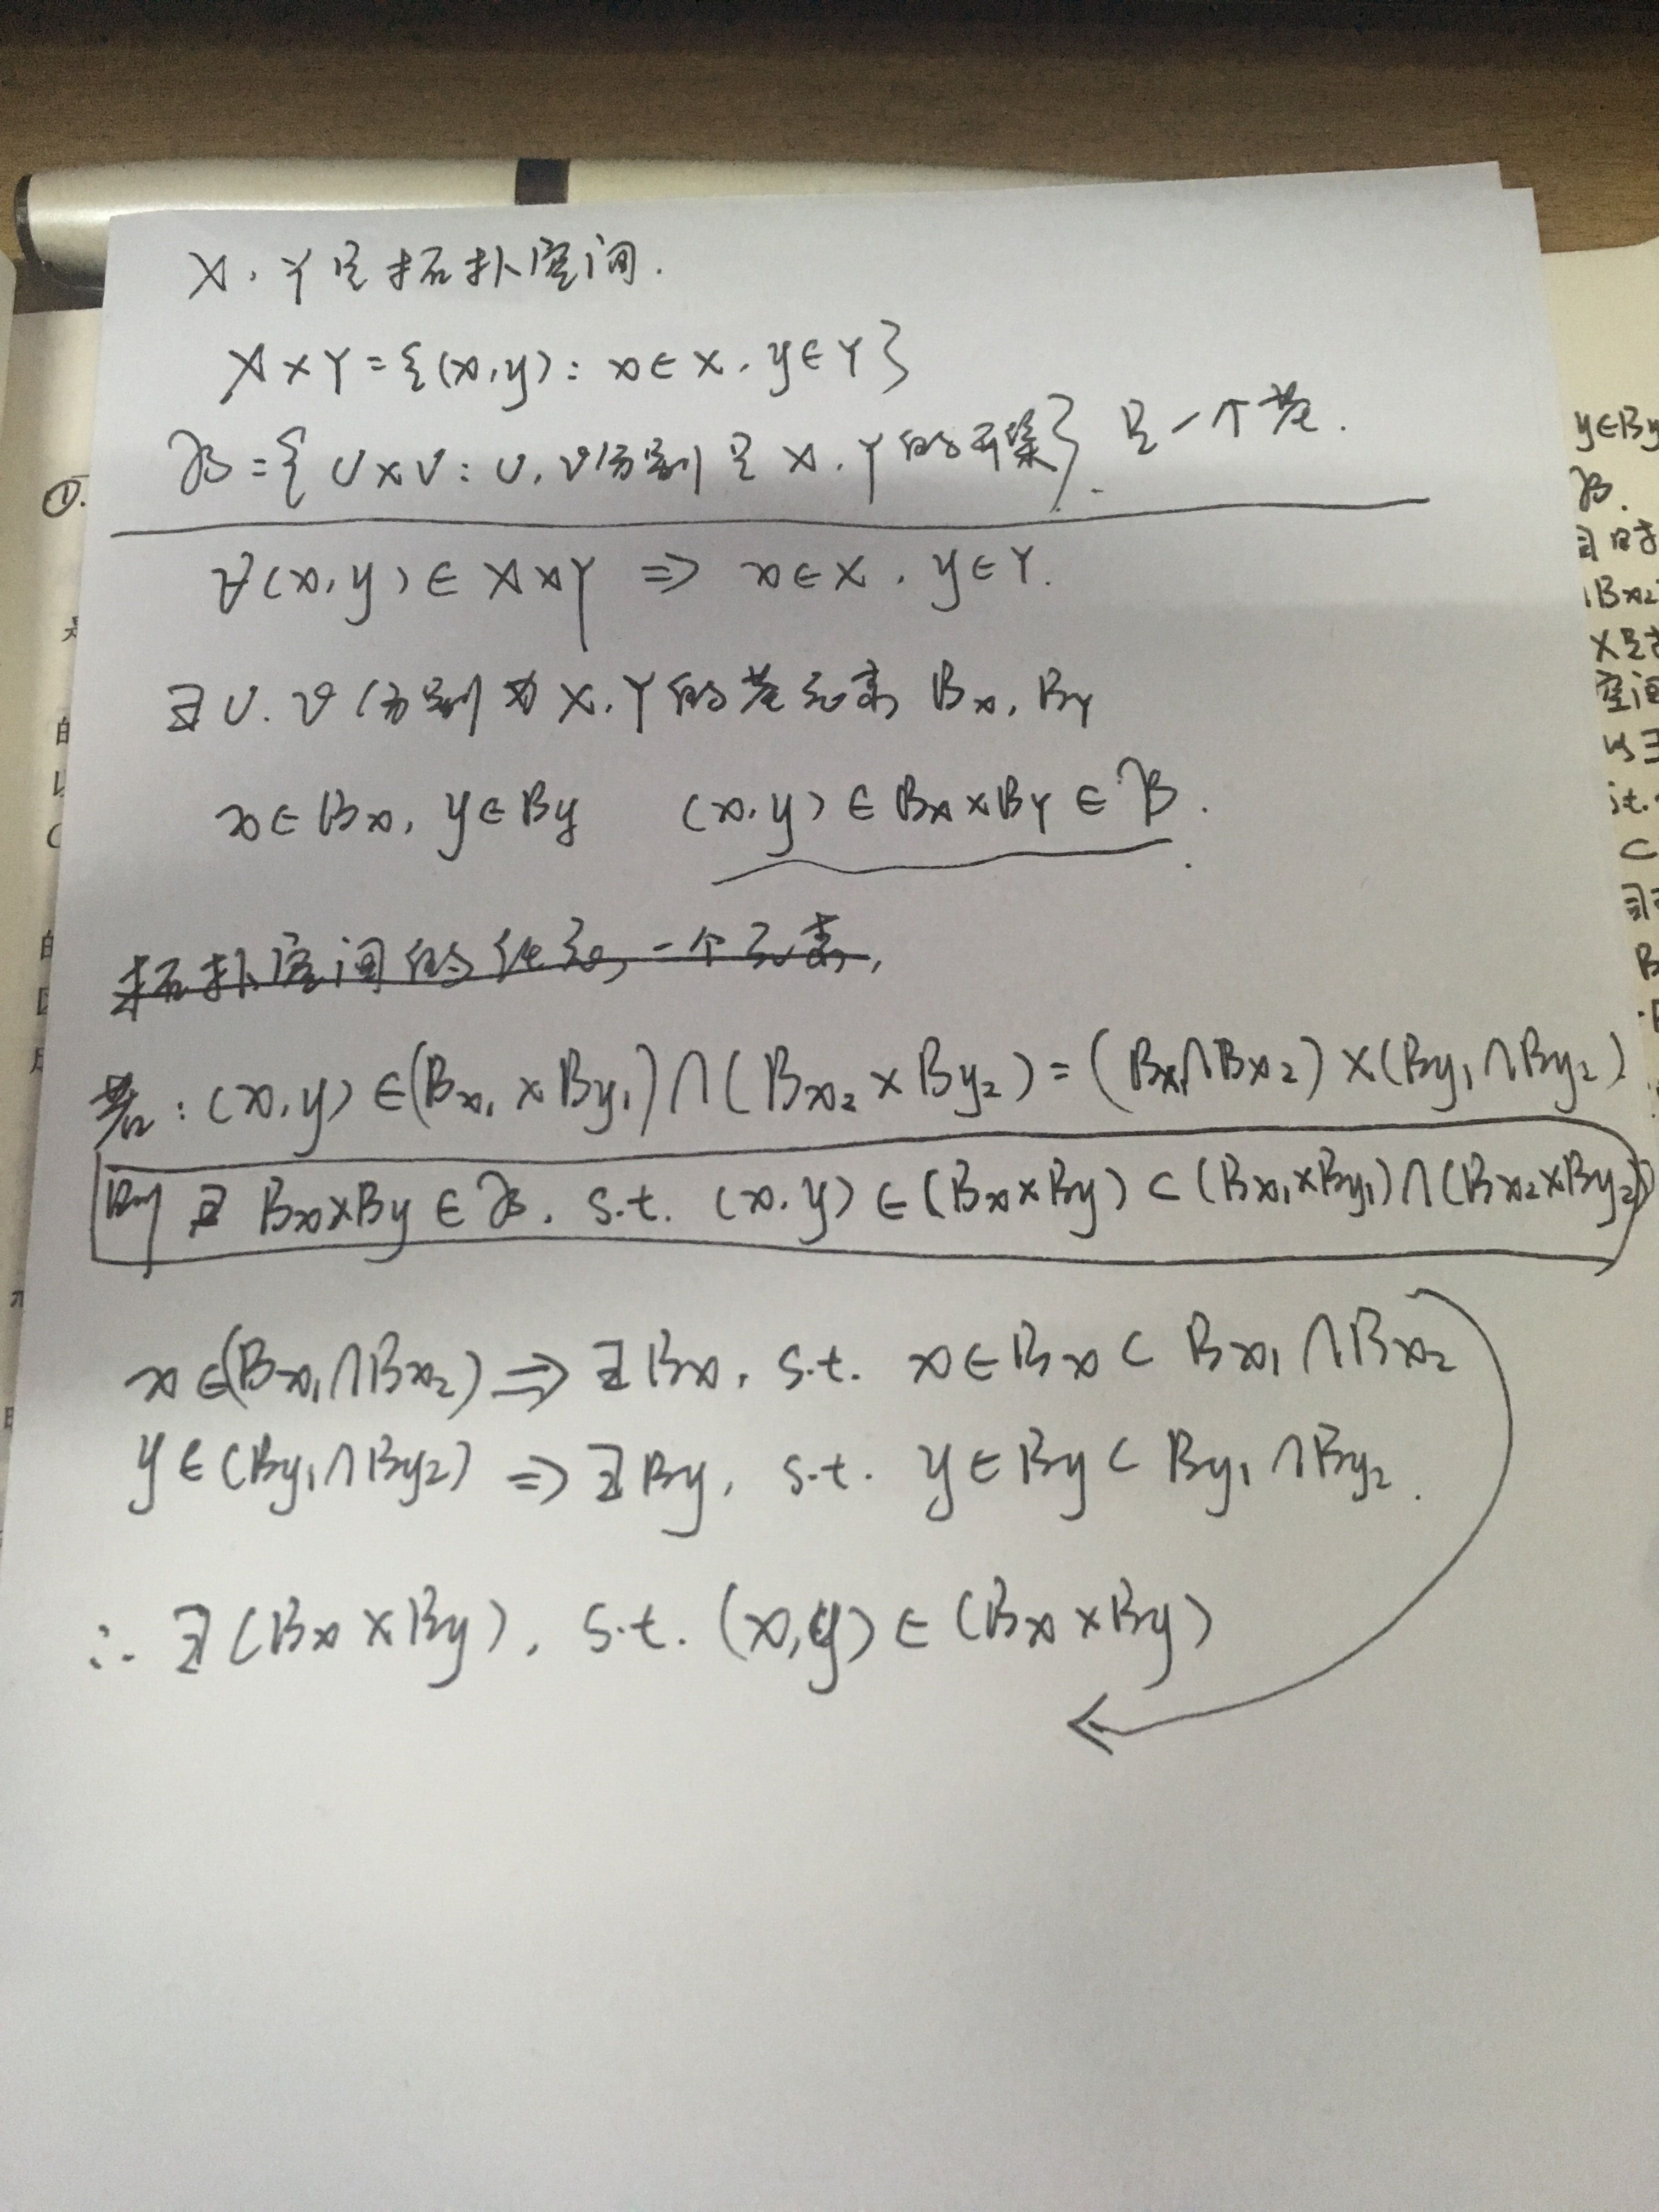 X, Y是拓扑空间.
X×Y={(x,y): x∈X, y∈Y}
ℬ={U×V: U, V分别是X, Y的开集} 是一个基.
∀(x,y)∈X×Y ⇒ x∈X, y∈Y.
∃U, V分别为X, Y的基元素 Bx, By
x∈Bx, y∈By (x,y)∈Bx×By∈ℬ.
拓扑空间的任意一个元素,
若: (x,y)∈(Bx₁×By₁)∩(Bx₂×By₂)=(Bx₁∩Bx₂)×(By₁∩By₂)
则∃ Bx×By∈ℬ, s.t. (x,y)∈(Bx×By)⊂(Bx₁×By₁)∩(Bx₂×By₂)
x∈(Bx₁∩Bx₂)⇒∃Bx, s.t. x∈Bx⊂Bx₁∩Bx₂
y∈(By₁∩By₂)⇒∃By, s.t. y∈By⊂By₁∩By₂.
∴ ∃(Bx×By), s.t. (x,y)∈(Bx×By)
①.
y∈By
ℬ.
Bx₂
空间